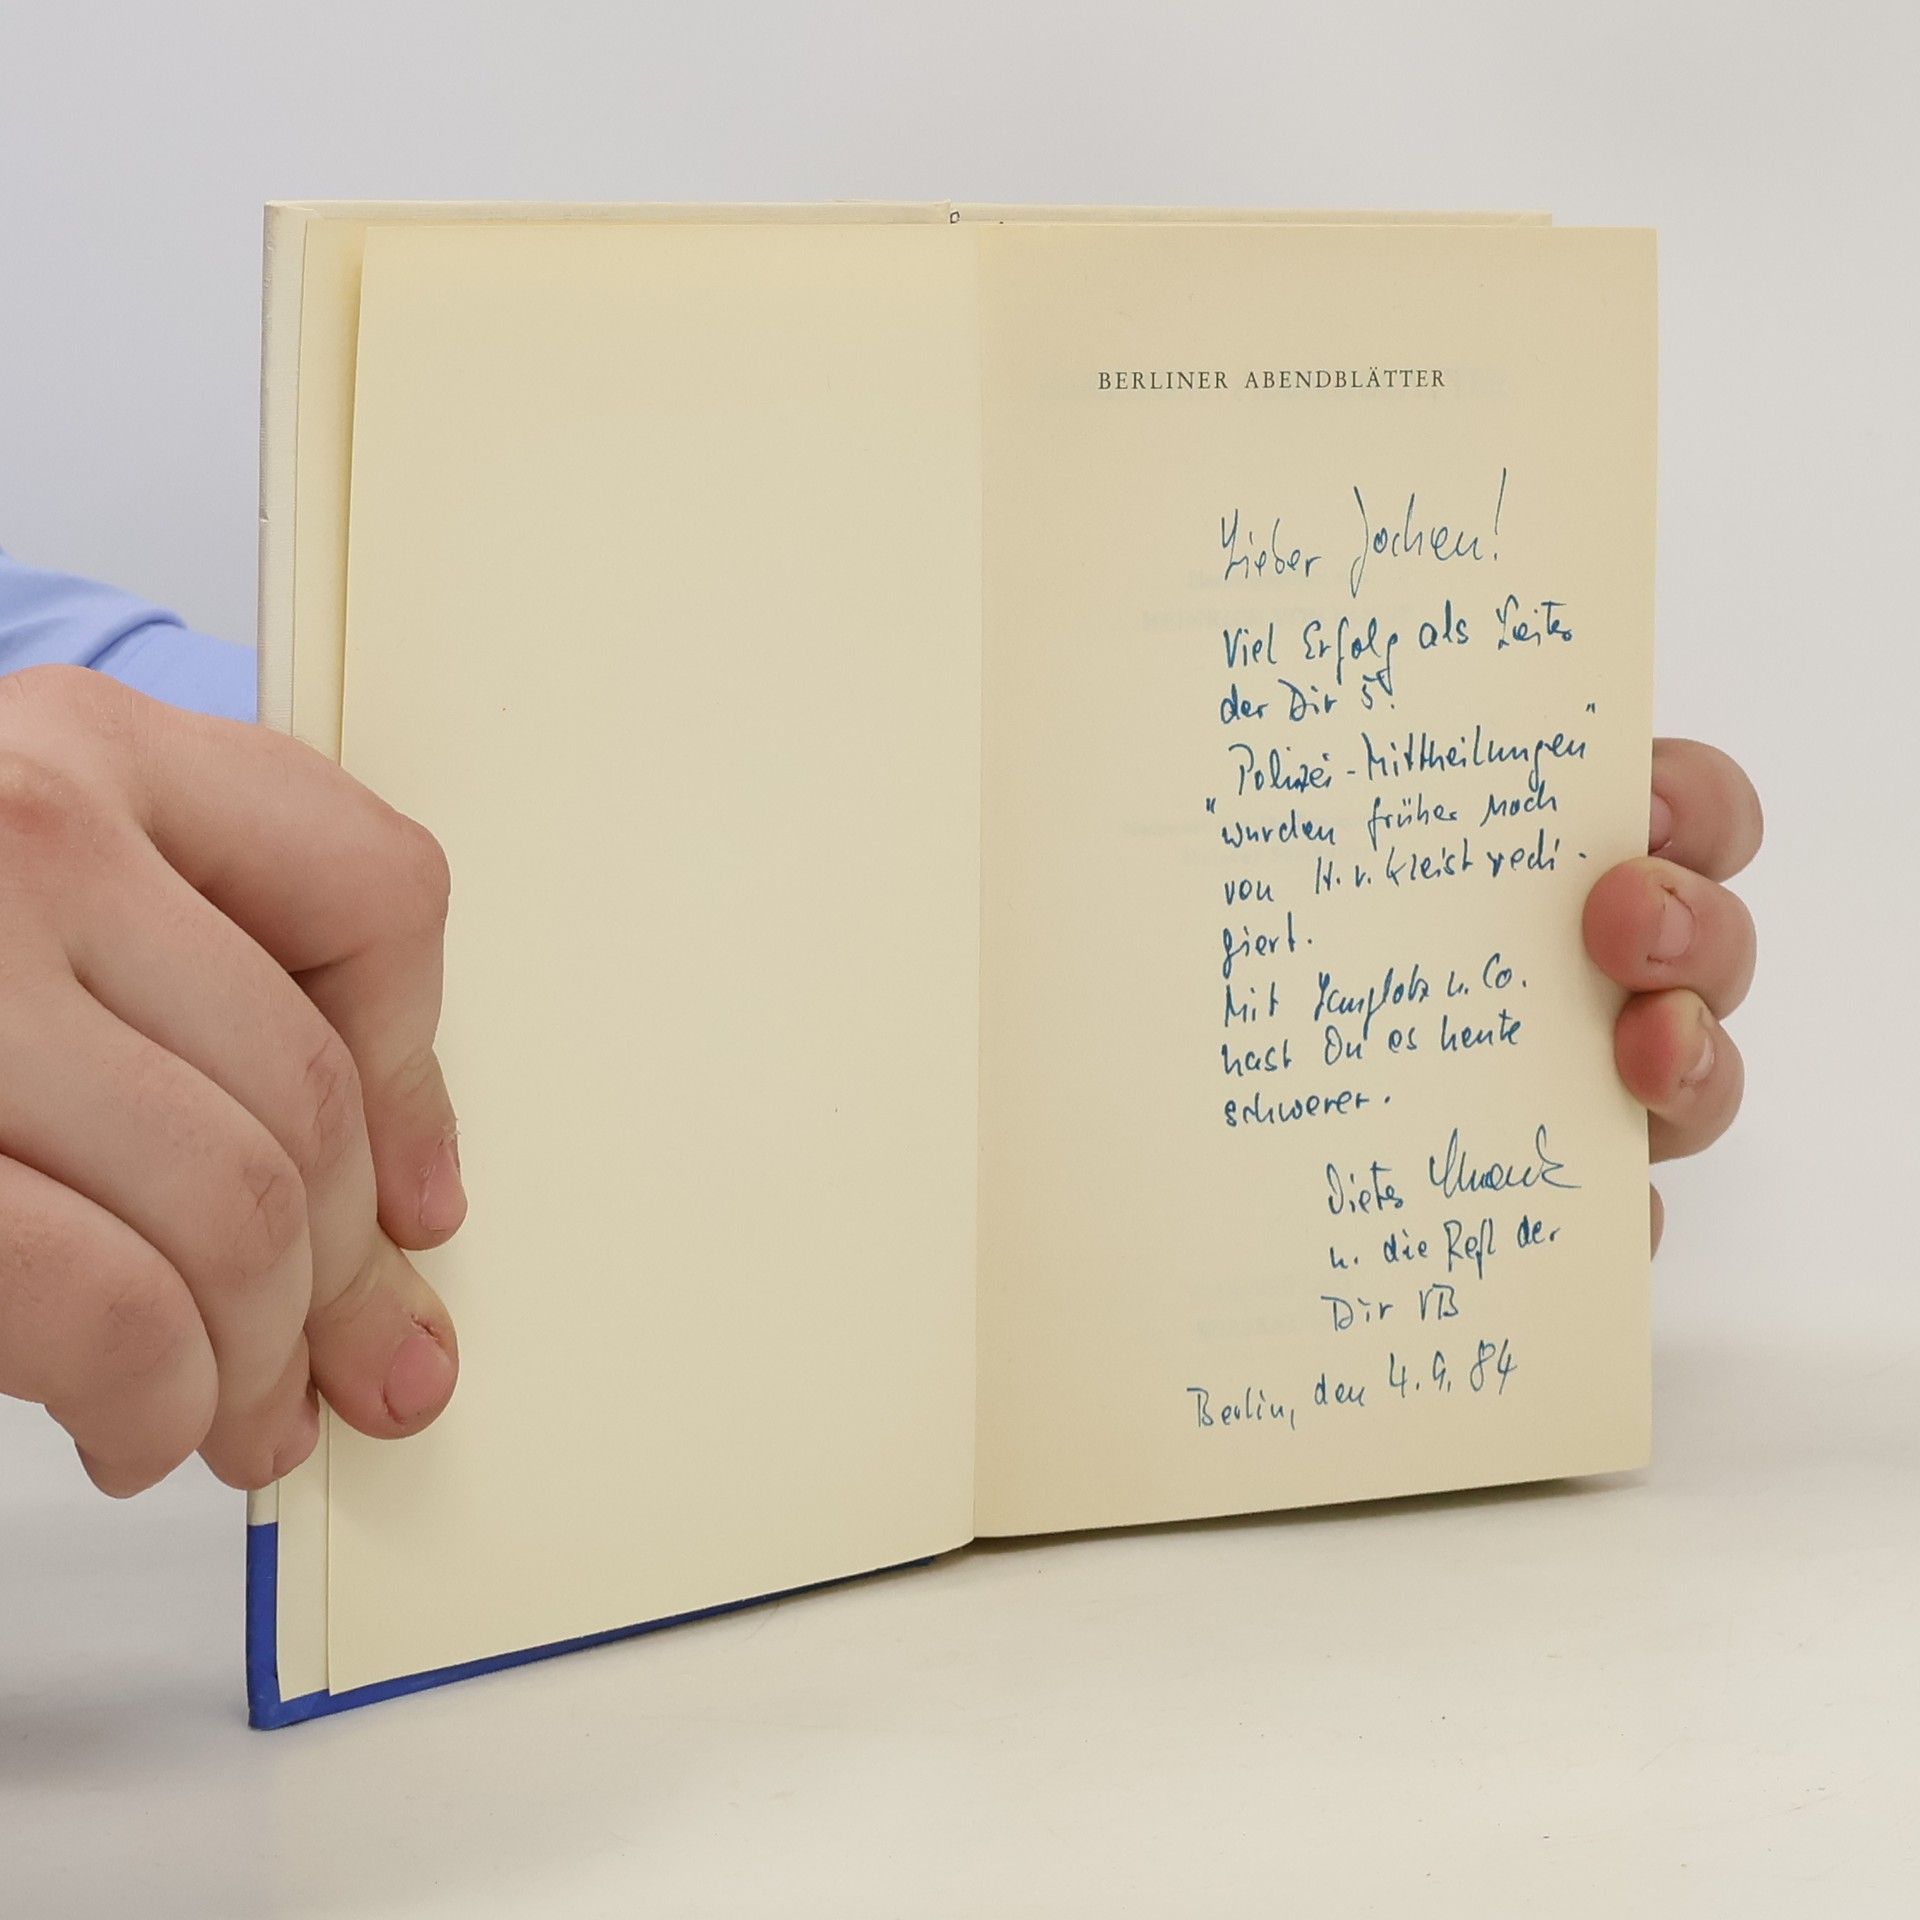 BERLINER ABENDBLÄTTER
Lieber Jochen!
Viel Erfolg als Leiter
der Dir 5!
"Polizei-Mittheilungen"
wurden früher noch
von H. v. Kleist redi-
giert.
Mit Langlotz u. Co.
hast Du es heute
schwerer.
Dieter
u. die Refl der
Dir VB
Berlin, den 4.9.84